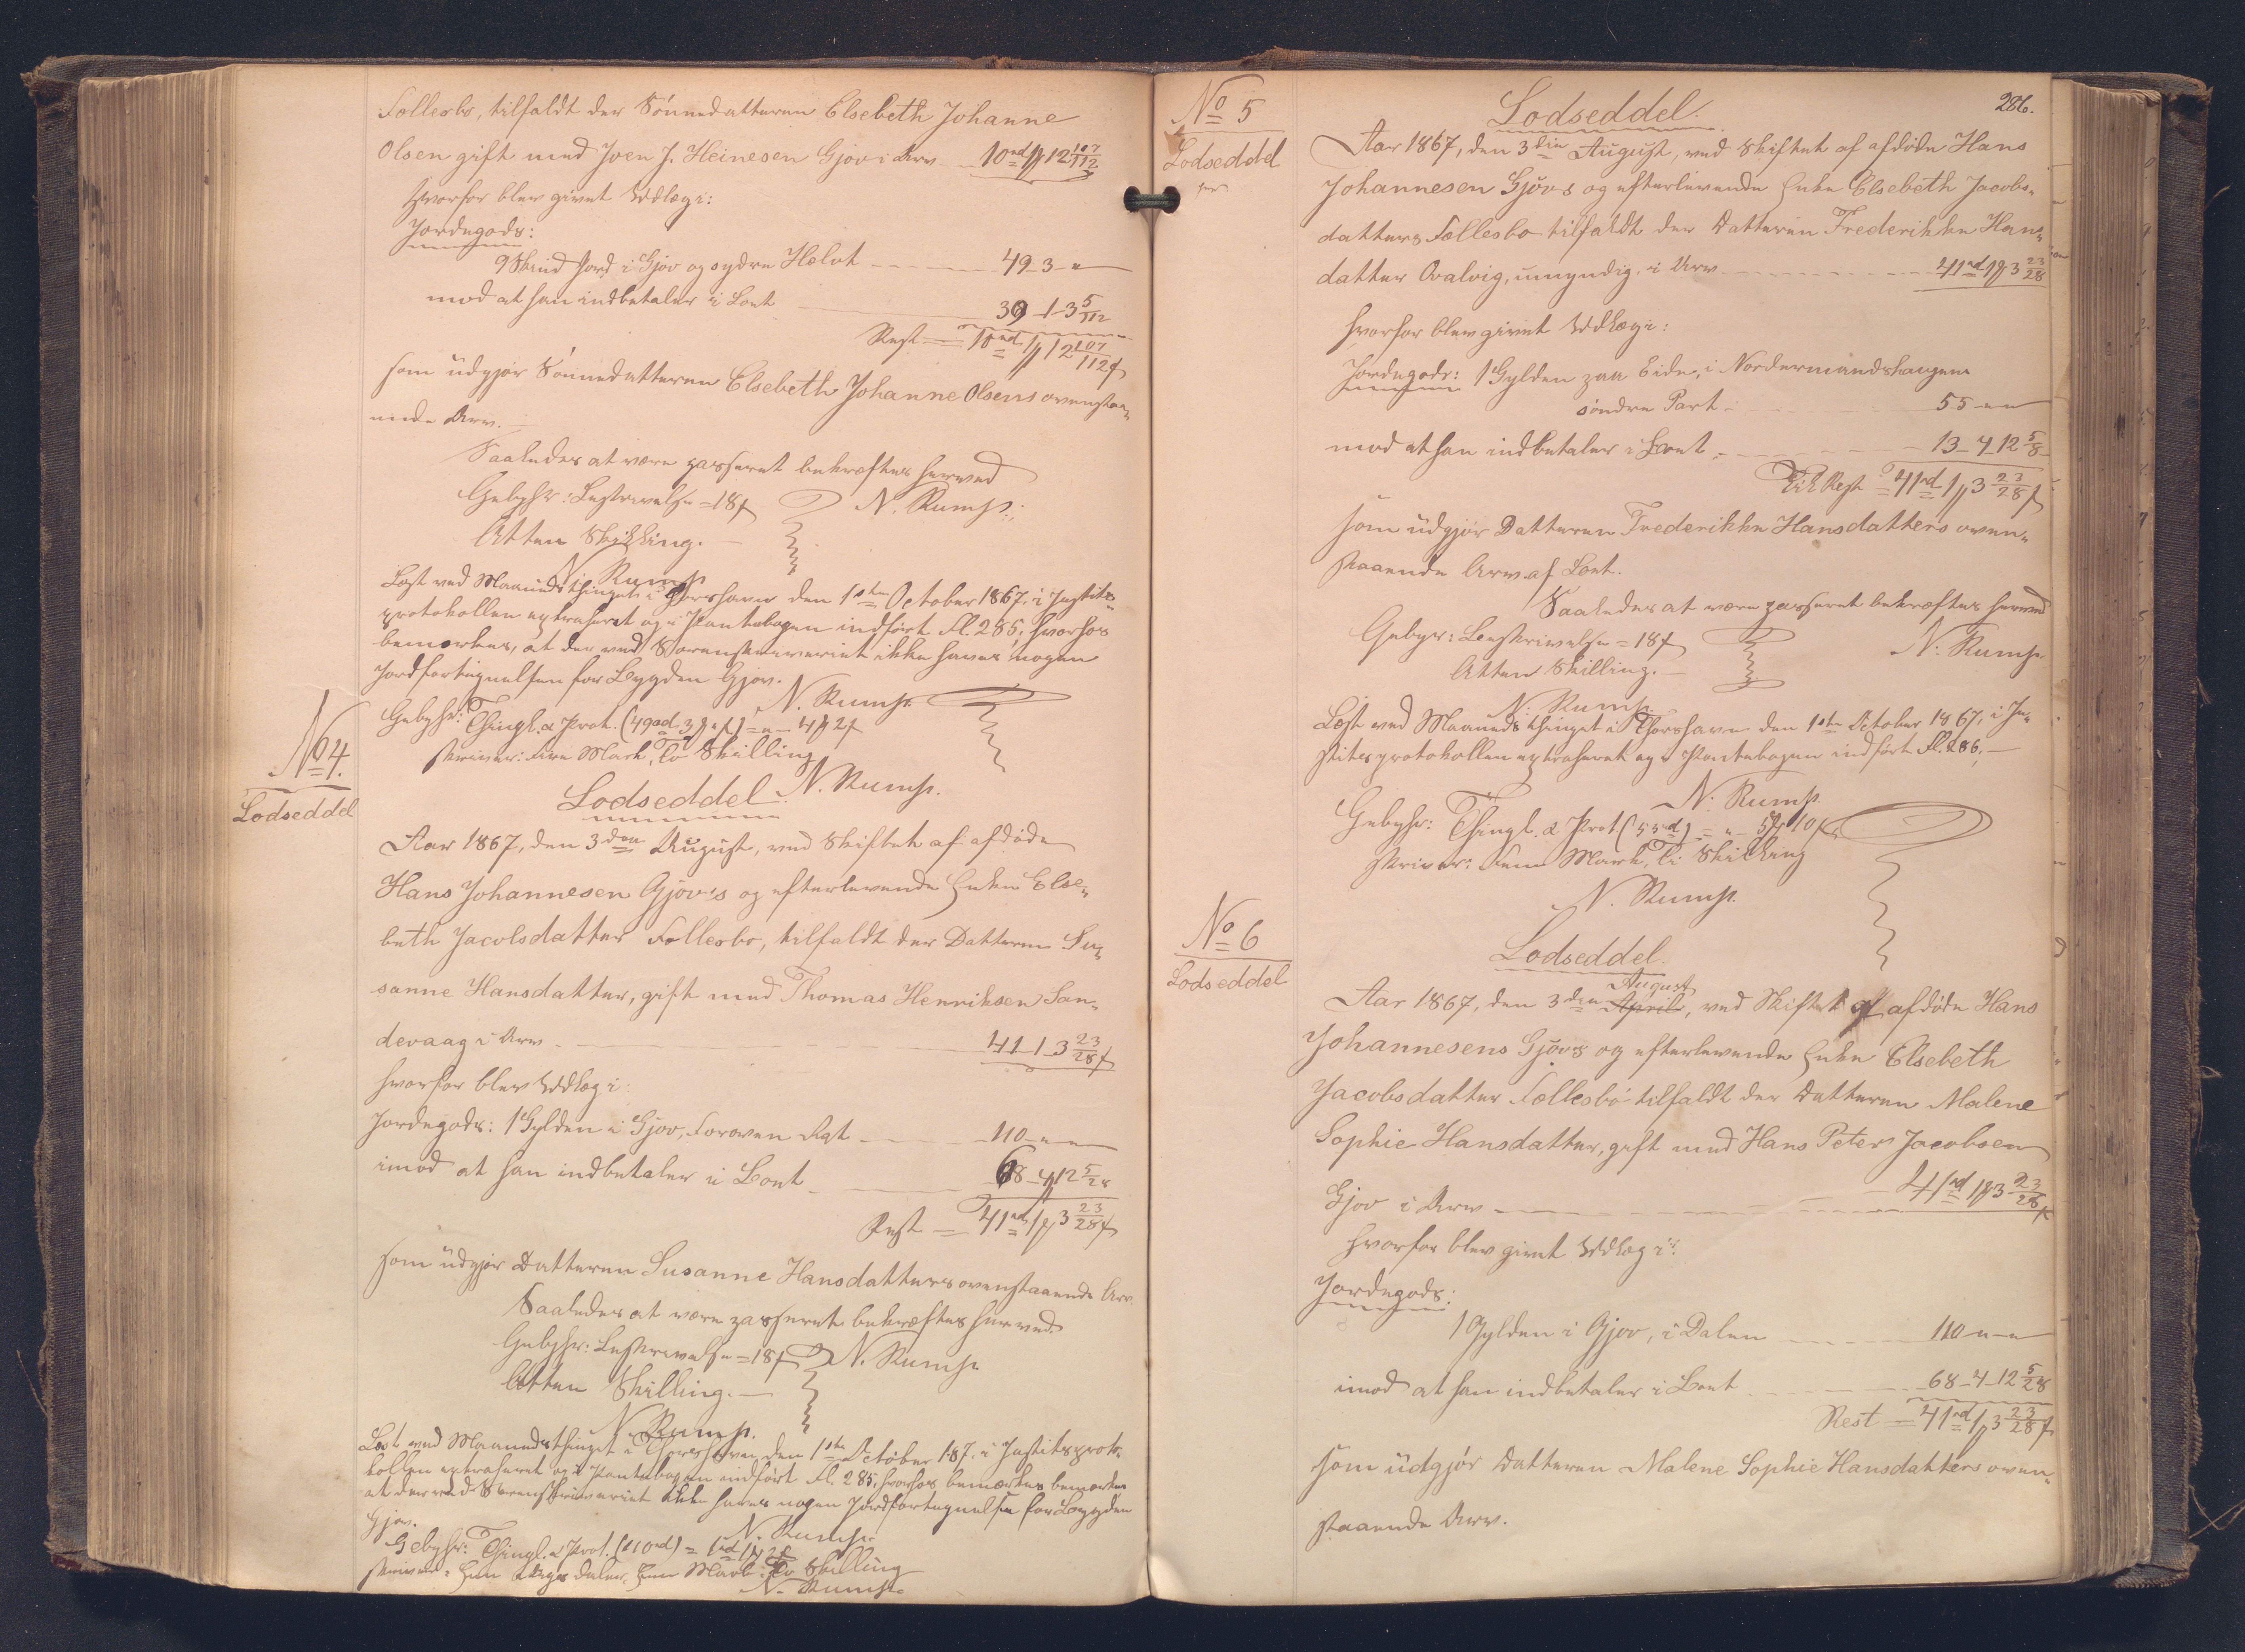 Fællesbo, tilfaldt der Sønnedatteren Elsebeth Johanne
Olsen gift med Joen J. Heinesen Gjov i Arv — 10rd 1ₘ 12 107/112
hvorfor blev givet Udlæg i:
Jordegods:
9 Skind Jord i Gjov og sydre Halvt — 49 - 3 - "
mod at han indbetaler i Boet — 39 - 1 - 3 5/112
Rest = 10rd 1ₘ 12 107/112 f
som udgjør Sønnedatteren Elsebeth Johanne Olsens ovenstaa-
ende Arv. —
Saaledes at være passeret bekræftes herved
Gebyhr: Beskrivelse = 18f N. Rump.
Atten Skilling. —
N. Rump
Læst ved Maanedsthinget i Thorshavn den 1ste October 1867, i Justits-
protokollen extraheret og i Pantebogen indført Fl. 285; hvorhos
bemærkes, at der ved Sorenskriveriet ikke haves nogen
Jordfortegnelse for Bygden Gjov.
N. Rump.
Gebyhr: Thingl. & Prot. (49rd 3ₘ " f) = " - 4ₘ 2f
skriver: Fire Mark, To Skilling
N. Rump.
No 4.
Lodseddel
Lodseddel.
Aar 1867, den 3den August, ved Skiftet af afdøde
Hans Johannesen Gjov's og efterlevende Enke Else-
beth Jacobsdatter Fællesbo, tilfaldt der Datteren Su-
sanne Hansdatter, gift med Thomas Henriksen San-
devaag i Arv — 41 - 1 - 3 23/28 f
hvorfor blev Udlæg i:
Jordegods: 1 Gylden i Gjov, Foroven Rgt — 110 - " - "
imod at han indbetaler i Boet — 68 - 4 12 5/28
Rest — 41rd 1ₘ 3 23/28 f
som udgjør Datteren Susanne Hansdatters ovenstaaende Arv.
Saaledes at være passeret bekræftes herved.
Gebyhr: Beskrivelse = 18f N. Rump
Atten Skilling. —
N. Rump.
Læst ved Maanedsthinget i Thorshavn den 1ste October 187. i Justitsproto-
kollen extraheret og i Pantebogen indført Fl. 285, hvorhos bemærkes bemærkes
at der ved Sorenskriveriet ikke haves nogen Jordfortegnelse for Bygden
Gjov.
N. Rump.
Gebyhr: Thingl. & Prot. (110rd) = 1rd 1ₘ 2f
skriver: Een Rigsdaler, Een Mark, To Skilling
N. Rump.
286.
No 5
Lodseddel
for
Lodseddel.
Aar 1867, den 3die August, ved Skiftet af afdøde Hans
Johannesen Gjóvs og efterlevende Enke Elsebeth Jacobs-
datters Fællesbo tilfaldt der Datteren Frederikke Hans-
datter Qvalvig, umyndig, i Arv — 41rd 1ₘ 3 23/28
hvorfor blev givet Udlæg i:
Jordegods: 1 Gylden paa Eide, i Nordermandshaugens
søndre Part — 55 - " - "
mod at han indbetaler i Boet — 13 - 4 - 12 5/8
Rest = 41rd 1ₘ 3 23/28 f
som udgjør Datteren Frederikke Hansdatters oven-
staaende Arv af Boet.
Saaledes at være passeret bekræftes herved
Gebyr: Beskrivelse = 18f N. Rump.
Atten Skilling. —
N. Rump.
Læst ved Maanedsthinget i Thorshavn den 1ste October 1867, i Ju-
stitsprotokollen extraheret og i Pantebogen indført Fl. 286. —
N. Rump.
Gebyhr: Thingl. & Prot. (55rd) = " - 5ₘ 10f
skriver: Fem Mark, Ti Skilling
N. Rump.
No 6
Lodseddel
Lodseddel.
August
Aar 1867, den 3den April, ved Skiftet af afdøde Hans
Johannesens Gjovs og efterlevende Enke Elsebeth
Jacobsdatter Fællesbo tilfaldt der Datteren Malene
Sophie Hansdatter, gift med Hans Peter Jacobsen
Gjov i Arv — 41rd 1ₘ 3 23/28 f
hvorfor blev givet Udlæg i:
Jordegods:
1 Gylden i Gjov, i Dalen — 110 - " - "
imod at han indbetaler i Boet — 68 - 4 - 12 5/28
Rest = 41rd 1ₘ 3 23/28 f
som udgjør Datteren Malene Sophie Hansdatters oven-
staaende Arv.